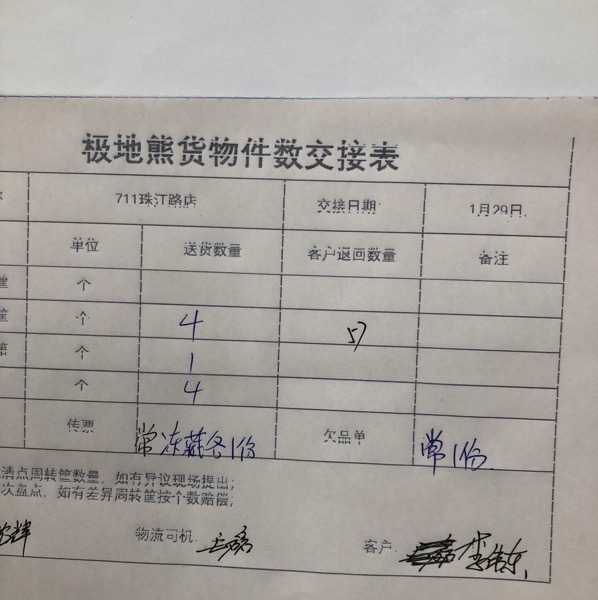 极地熊货物件数交接表
711珠江路店 交接日期: 1月29日
单位 送货数量 客户退回数量 备注
筐 个
筐 个 4 57
箱 个 1
个 4
传票 常冻蔬各1份 欠品单 常1份
清点周转筐数量，如有异议现场提出；
次盘点，如有差异周转筐按个数赔偿，
物流司机: 客户: